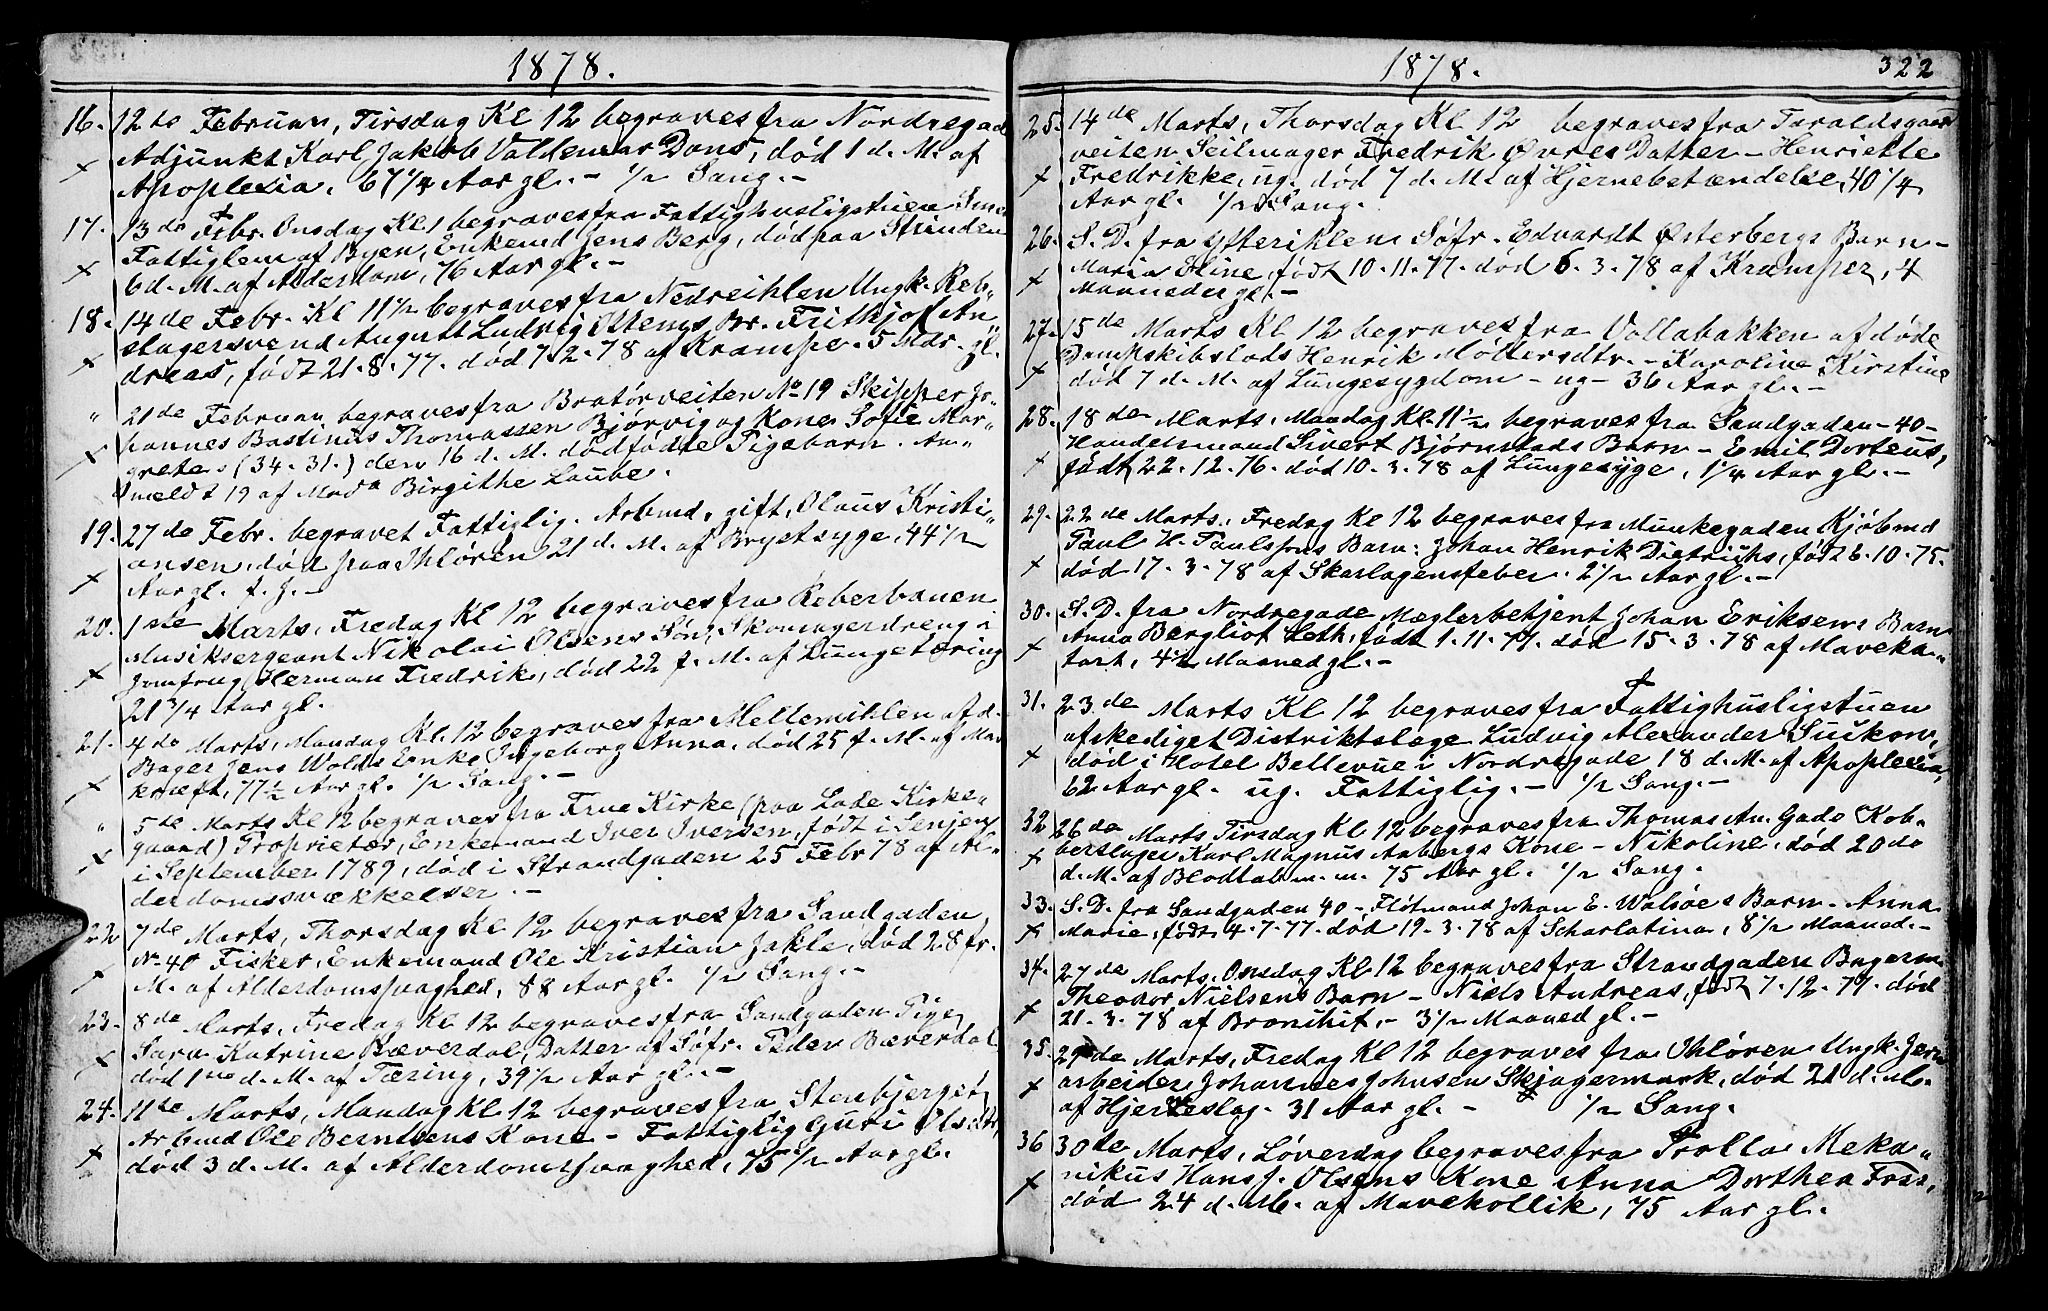 1878.
16. 12te Februar, Tirsdag Kl 12 begraves fra Nordregade
Adjunkt Karl Jakob Valdemar Dons, død 1 d. M. af
Apoplexia, 67 1/4 Aar gl. - 1/2 Sang. -
17. 13de Febr. Onsdag Kl 1 begraves fra Fattighusligstuen
Fattiglem af Byen, Enkemd Jens Berg, død paa Strinden
6 d. M. af Alderdom, 76 Aar gl. -
18. 14de Febr. Kl 11 1/2 begraves fra Nedreihlen Ungk. Reb-
slagersvend August Ludvig Ostems Br. Frithjof An-
dreas, født 21-8-77. død 7-2-78 af Krampe. 5 Mdr. gl.
" 21de Februar begraves fra Bratørveiten No 19 Skipper Jo-
hannes Bastinus Thomassen Bjørvig og Kone Sofie Mar-
grete (34.31.) den 16 d. M. dødfødte Pigebarn. An-
meldt 19 af Mada Birgithe Laube.
19. 27de Febr. begravet Fattiglig. Arbmd, gift, Olaus Kristi-
ansen, død paa Ihløren 21 d. M. af Brystsyge, 44 1/2
Aar gl. f. J. -
20. 1ste Marts, Fredag Kl 12 begraves fra Reberbanen
Musiksergeant Nikolai Olsens Søn, Skomagerdreng i
Herman Fredrik, død 22 f. M. af Lungetæring
21 3/4 Aar gl.
21. 4de Marts, Mandag Kl. 12 begraves fra Mellemihlen afd.
Bager Jens Wolds Enke Ingeborg Anna, død 25 f. M. af Mav
kræft, 77 1/2 Aar gl. 1/2 Sang. -
" 5de Marts Kl 12 begraves fra Frue Kirke (paa Lade Kirke-
gaard) Proprietær, Enkemand Iver Iversen, født i Senjen
i September 1789, død i Strandgaden 25 Febr 78 af Al-
derdomssvækkelser. -
22 7de Marts, Thorsdag Kl 12 begraves fra Sandgaden
No 40 Fisker, Enkemand Ole Kristian Jakle, død 28 fr.
M. af Alderdomssvaghed, 88 Aar gl. 1/2 Sang. -
23. 8de Marts, Fredag Kl 12 begraves fra Sandgaden Pige
Sara Katrine Bæverdal, Datter af Søfr. Peder Bæverdal
død 1ne d. M. af Tæring, 39 1/2 Aar gl. -
24. 11te Marts, Mandag Kl 12 begraves fra Stenbjerget
Arbmd Ole Berntsens Kone - Fattiglig Guri Olsdtr,
død 3 d. M. af Alderdomssvaghed, 75 1/2 Aar gl.
1878.
322
25. 14de Marts, Thorsdag Kl 12 begraves fra Taraldsgaard
veiten Seilmager Fredrik Øvres Datter - Henriette
Fredrikke, ug. død 7 d. M. af Hjernebetændelse, 40 1/4
Aar gl. 1/2 Sang.
26. S. D. fra Ytterihlen Søfr. Edvardt Østerbergs Barn -
Maria Eline, født 10-11-77. død 6-3-78 af Kramper, 4
Maaneder gl. -
27. 15de Marts Kl 12 begraves fra Vollabakken afdøde
Dampskibslods Henrik Møllersdtr. - Karoline Kirstine
død 7 d. M. af Lungesygdom - ug - 36 Aar gl. -
28. 18de Marts, Mandag Kl. 11 1/2 begraves fra Sandgaden - 40 -
Handelsmand Sivert Bjørnstads Barn - Emil Dorteus,
født 22-12-76. død 10-3-78 af Lungesyge, 1 1/4 Aar gl. -
29. 22de Marts, Fredag Kl 12 begraves fra Munkegaden Kjøbmd
Paul H. Paulsens Barn: Johan Henrik Dietrichs, født 6-10-75.
død 17-3-78 af Skarlagensfeber. 2 1/2 Aar gl. -
30. S. D. fra Nordregade Mæglerbetjent Johan Eriksens Barn
Anna Bergliot Leth, født 1-11-77. død 15-3-78 af Maveka-
tarr, 4 1/2 Maaned gl. -
31. 23de Marts Kl 12 begraves fra Fattighusligstuen
afskediget Distriktslæge Ludvig Alexander
død i Hotel Bellevue i Nordregade 18 d. M. af Apoplexia,
62 Aar gl. ug. Fattiglig. - 1/2 Sang. -
32 26de Marts Tirsdag Kl 12 begraves fra Thomas An. Gade Kob-
berslager Karl Magnus Aabergs Kone - Nikoline, død 20de
d. M. af Blodtab m. m. 75 Aar gl. 1/2 Sang.
33. S. D. fra Sandgaden 40 - Fløtmand Johan E. Walsøes Barn - Anna
Marie, født 4-7-77. død 19-3-78 af Scharlatina, 8 1/2 Maaned. -
34. 27de Marts, Onsdag Kl 12 begraves fra Strandgaden Bagerm
Theodor Nielsens Barn - Niels Andreas, født 7-12-77. død
21-3-78 af Bronihit. - 3 1/2 Maaned gl. -
35. 29de Marts, Fredag Kl 12 begraves fra Ihløren Ungk. Jern
arbeider Johannes Johnsen Skjagermark, død 21 d. M.
af Hjerteslag. 31 Aar gl. - 1/2 Sang.
36 30de Marts, Løverdag begraves fra Trolla Meka-
nikus Hans J. Olsens Kone Anna Dorthea
død 24 d. M. af Mavekollik, 75 Aar gl.